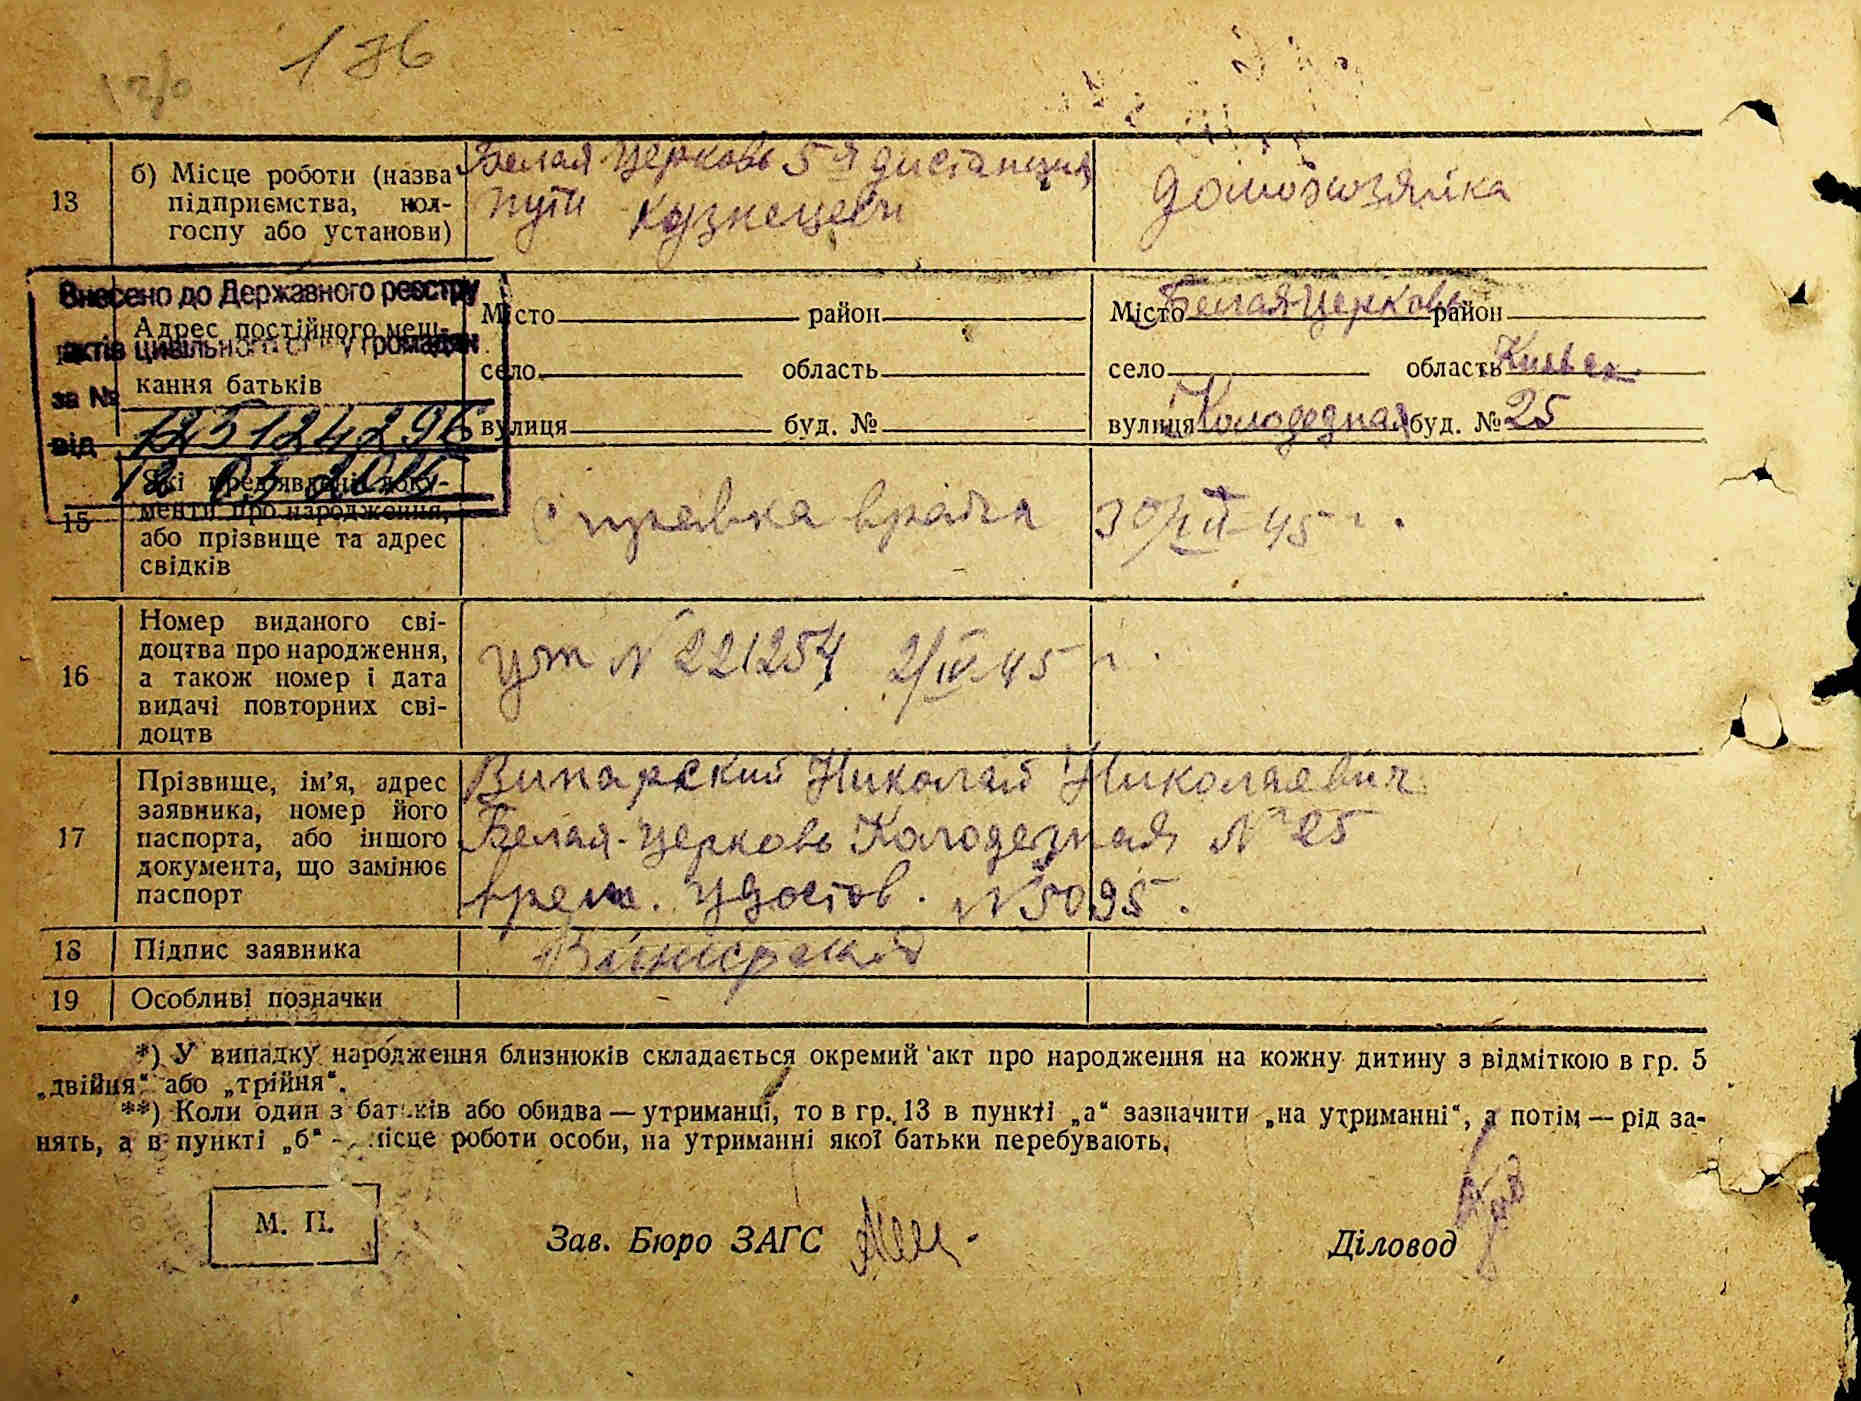 136
13 б) Місце роботи (назва підприємства, кол-
госпу або установи)
Белая Церковь 5я дистанция
пути
Домохозяйка
Внесено до Державного реєстру
актів цивільного стану громадян
за № 125124296
від
Адрес постійного меш-
кання батьків
Місто район
село область
вулиця буд. №
Місто Белая Церковь район
село область Киевск
вулиця Колодезная буд. № 25
15 Які пред'явлені доку-
менти про народження,
або прізвище та адрес
свідків
Справка врача 30/III-45 г.
16 Номер виданого сві-
доцтва про народження,
а також номер і дата
видачі повторних сві-
доцтв
№ 221254 2/IV-45 г.
17 Прізвище, ім’я, адрес
заявника, номер його
паспорта, або іншого
документа, що замінює
паспорт
Николай Николаевич
Белая-Церковь Колодезная № 25
врем. удостов. № 5095.
18 Підпис заявника
19 Особливі позначки
*) У випадку народження близнюків складається окремий акт про народження на кожну дитину з відміткою в гр. 5
„двійня“ або „трійня“.
**) Коли один з батьків або обидва — утриманці, то в гр. 13 в пункті „а“ зазначити „на утриманні“, а потім — рід за-
нять, а в пункті „б“ — місце роботи особи, на утриманні якої батьки перебувають.
М. П.
Зав. Бюро ЗАГС
Діловод